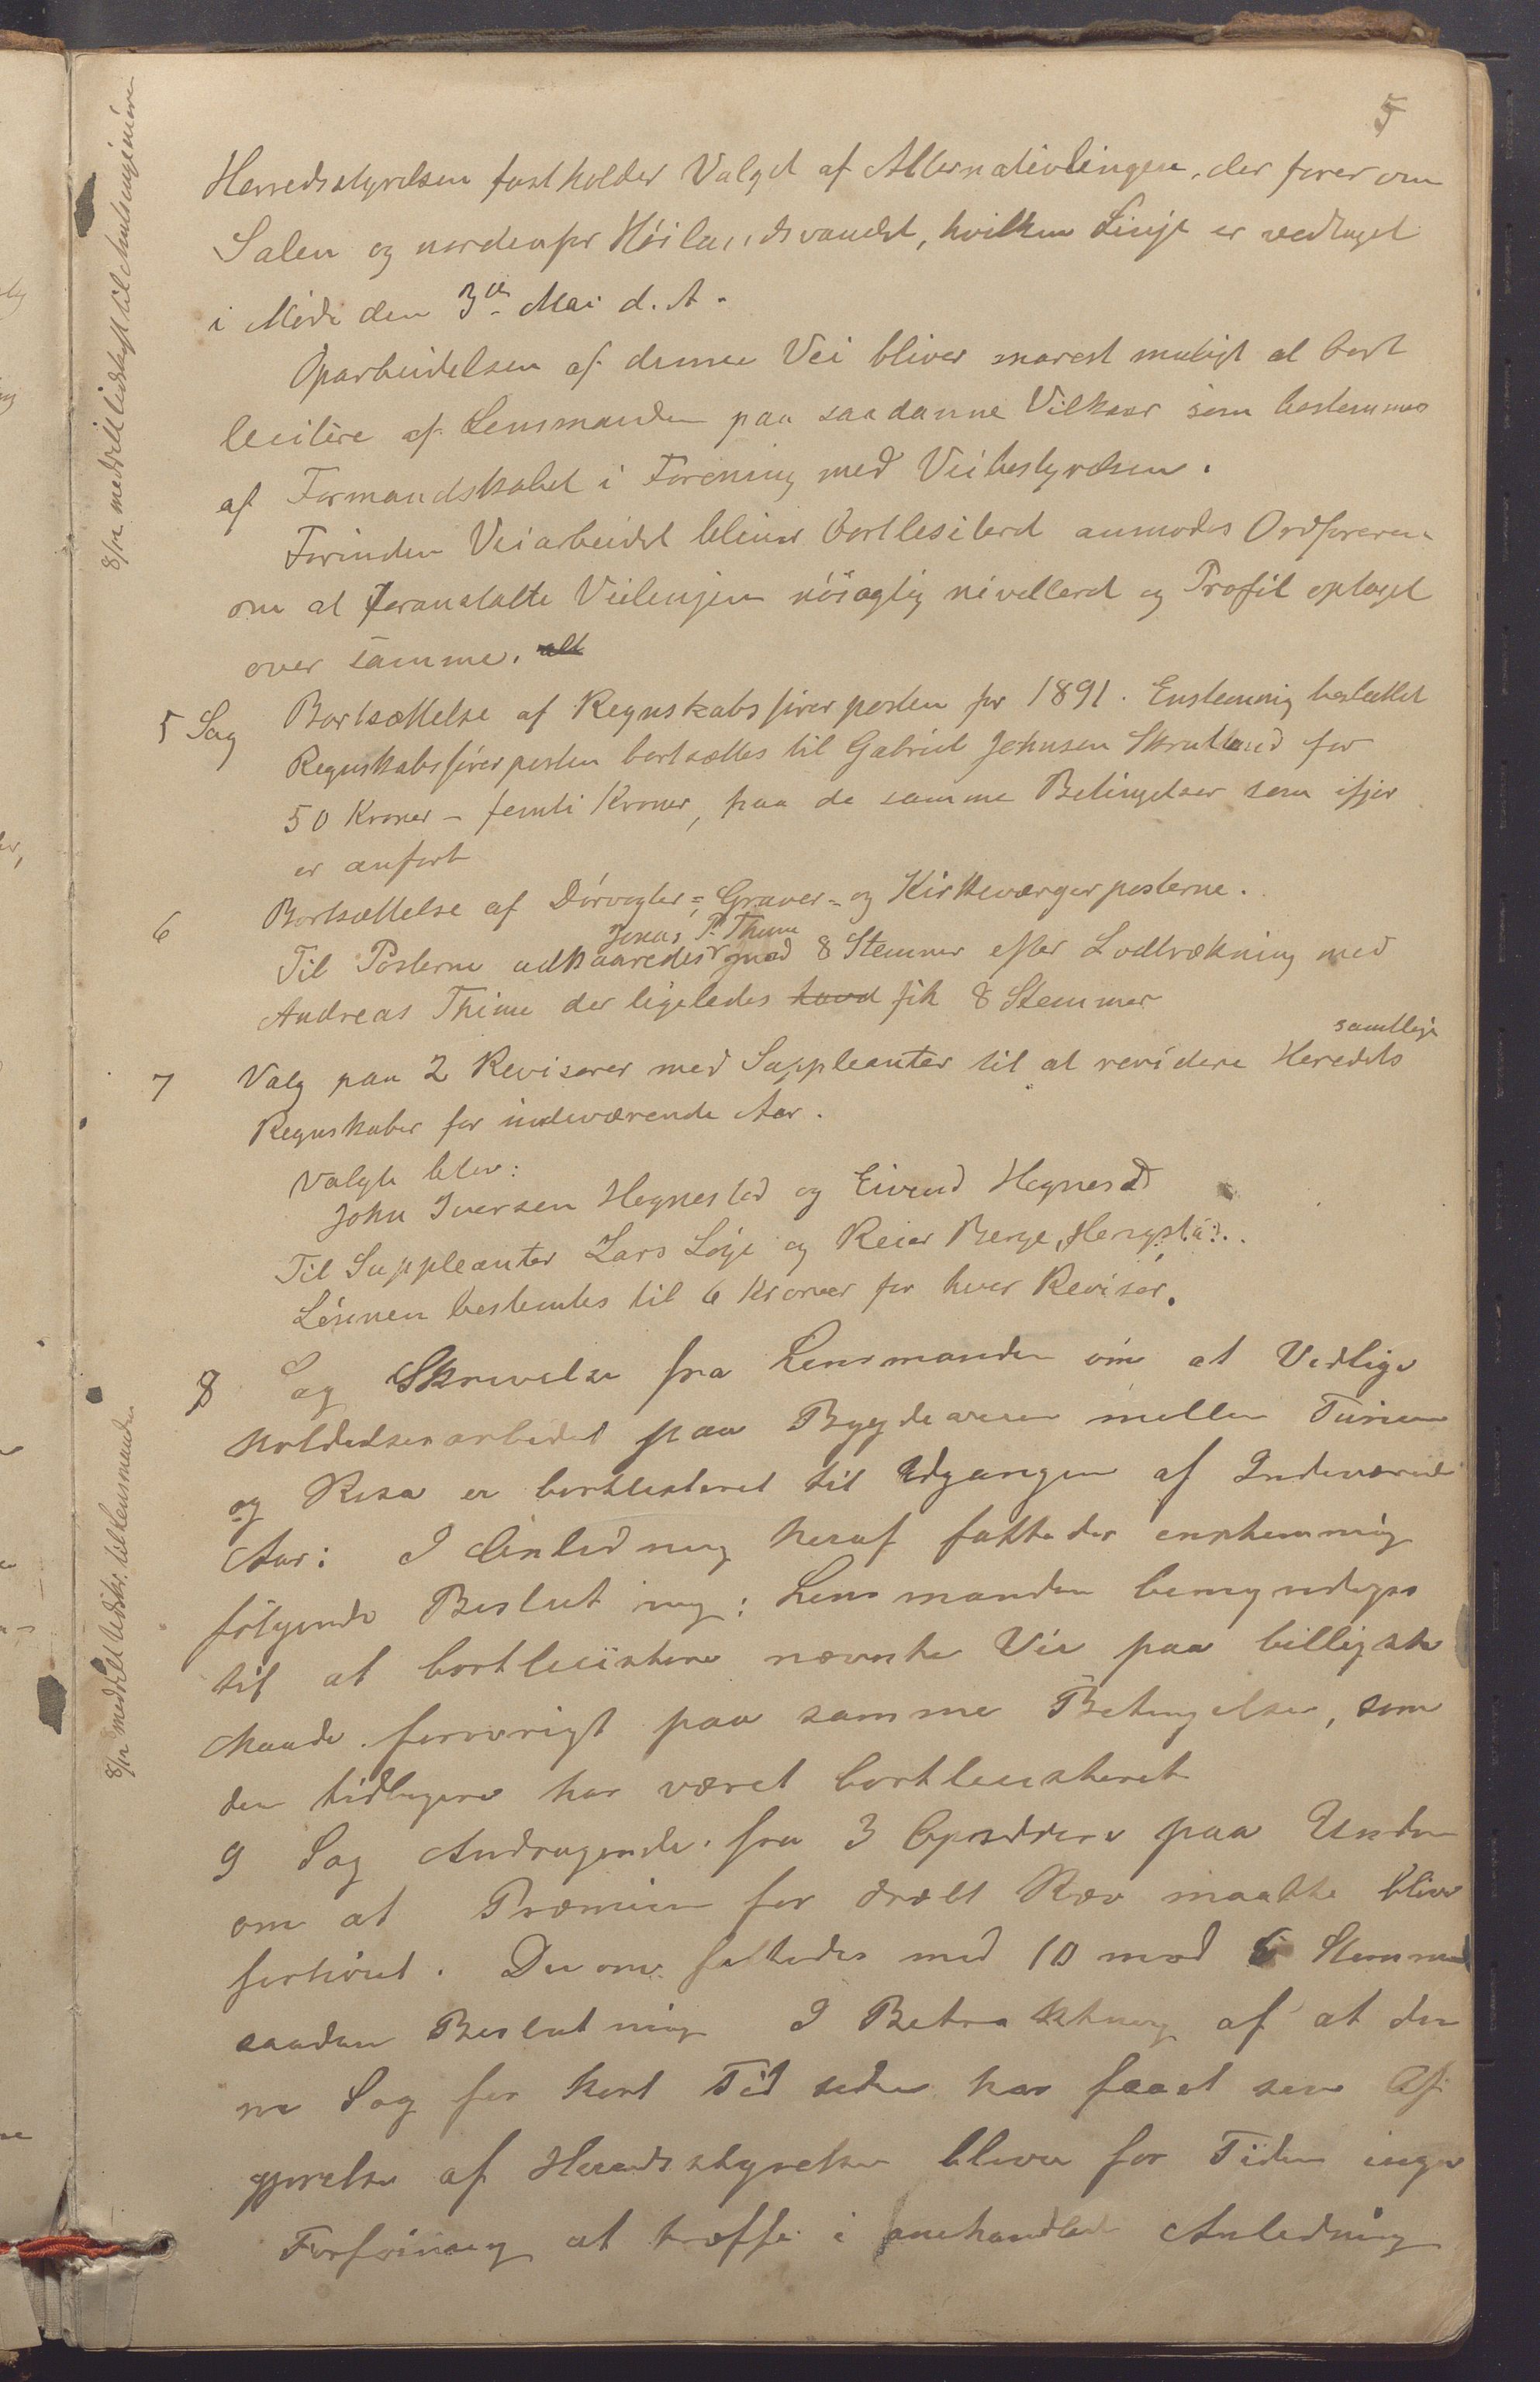 5
Herredsstyrelsen fastholder Valget af Alternativlinjen, der fører om
Salen og nordenfor Höilandsvandet, hvilken Linje er vedtaget
i Möde den 3die Mai d. A.
Oparbeidelsen af denne Vei bliver snarest muligt at bort
licitere af Lensmanden paa saadanne Vilkaar som bestemmes
af Formandskabet i Forening med Veibestyrelsen.
Forinden Veiarbeidet bliver bortlisiterd anmodes Ordföreren
om at foranstalte Veilinjen nöiagtig nivellerd og Profil optaget
over samme. alt
5 Sag Bortsættelse af Regnskabsförerposten for 1891. Enstemmig besluttet
Regnskabsförerposten bortsættes til Gabriel Johnsen Skrudland for
50 Kroner - femti Kroner, paa de samme Betingelser som ifjor
er anfört
6 Bortsættelse af Dörvogter=, Graver= og Kirkeværgerposterne.
Jonas P. Thime
Til Posterne udkaaredes med 8 Stemmer efter Lodtrækning med
Andreas Thime der ligeledes havd fik 8 Stemmer
samtlige
7 Valg paa 2 Revisorer med Suppleanter til at revidere Heredets
Regnskaber for indeværende Aar.
Valgte blev:
John Iversen Hegnestad og Eivend Hegnestd
Til Suppleanter Lars Löge og Reier Berge,
Lönnen bestemtes til 6 Kroner for hver Revisor.
8 Sag Skrivelse fra Lensmanden om at Vedlige
holdelsesarbeidet paa Bygdeveien mellem Tunem
og Risa er bortlisteret til Udgangen af Indeværende
Aar: I Anledning heraf fattedes enstemmig
fölgende Beslutning: Lensmanden bemyndiges
til at bortlicistere nævnte Vei paa billigste
Maade forövrigt paa samme Betingelser, som
den tidligere har været bortlicisteret
9 Sag Andragende fra 3 Opsiddere paa Undem
om at Præmien for dræbt Ræv maatte blive
forhöiet. Derom fattedes med 10 mod 6 Stemmer
saadan Beslutning I Betraktning af at den
ne Sag for kort Tid siden har faaet sin Af
gjörelse af Heredsstyrelsen bliver for Tiden ingen
Forföining at træffe i omehandlede Anledning
8/12 meddelt Uidskrift til Amtsingeniøren
8/12 meddelt Uidskr. til Lensmanden